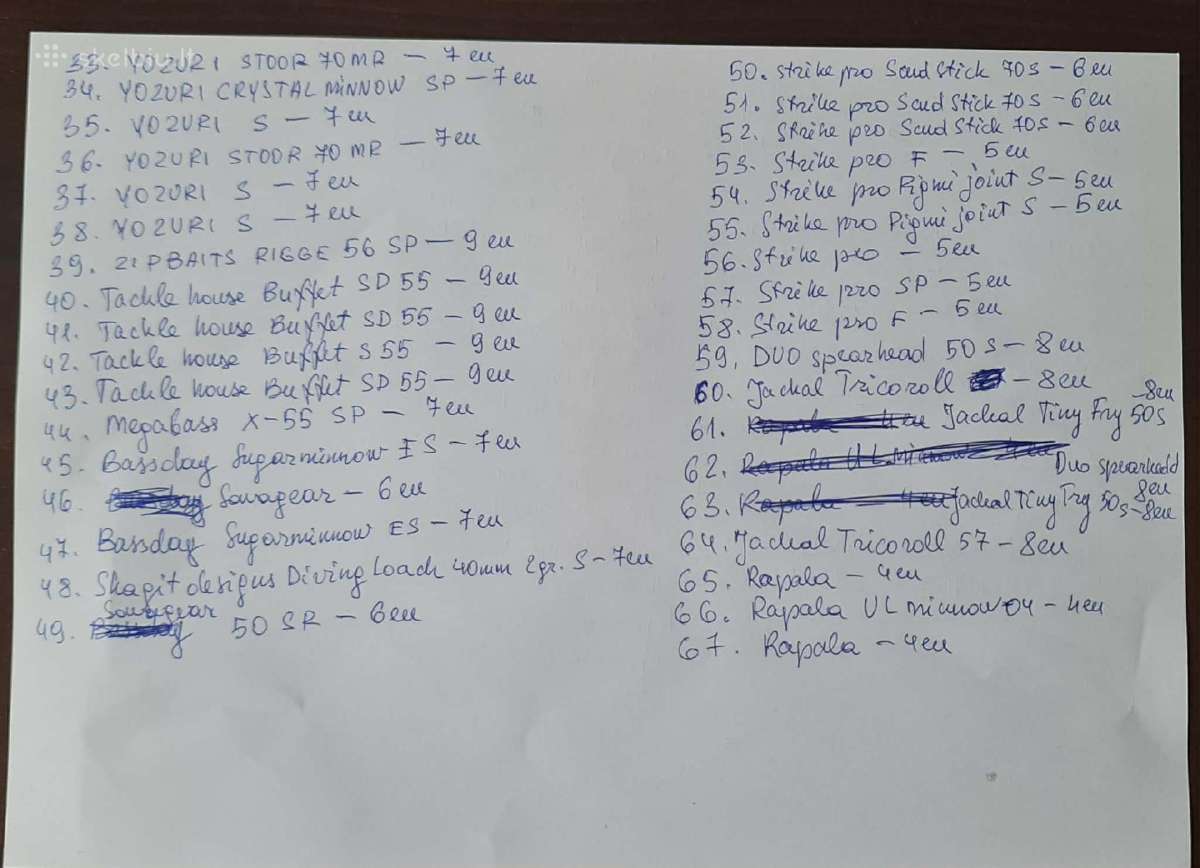 skelbiu.lt
33. YOZURI STOOR 70 MR — 7 eu
34. YOZURI CRYSTAL MINNOW SP — 7 eu
35. YOZURI S — 7 eu
36. YOZURI STOOR 70 MR — 7 eu
37. YOZURI S — 7 eu
38. YOZURI S — 7 eu
39. ZIPBAITS RIGGE 56 SP — 9 eu
40. Tackle house Buffet SD 55 — 9 eu
41. Tackle house Buffet SD 55 — 9 eu
42. Tackle house Buffet S 55 — 9 eu
43. Tackle house Buffet SD 55 — 9 eu
44. Megabass X-55 SP — 7 eu
45. Bassday Sugarminnow ES — 7 eu
46. Savagear — 6 eu
47. Bassday Sugarminnow ES — 7 eu
48. Skagit designs Diving Loach 40mm 2gr. S — 7 eu
49. Savagear 50 SR — 6 eu
50. Strike pro Scud Stick 70 S — 6 eu
51. Strike pro Scud Stick 70 S — 6 eu
52. Strike pro Scud Stick 70 S — 6 eu
53. Strike pro F — 5 eu
54. Strike pro Pigmi joint S — 5 eu
55. Strike pro Pigmi joint S — 5 eu
56. Strike pro — 5 eu
57. Strike pro SP — 5 eu
58. Strike pro F — 5 eu
59. DUO spearhead 50 S — 8 eu
60. Jackal Tricoroll — 8 eu
61. Rapala 4 eu Jackal Tiny Fry 50S — 8 eu
62. Rapala UL Minnow Duo spearheadd 8 eu
63. Rapala 4 eu Jackal Tiny Fry 50s — 8 eu
64. Jackal Tricoroll 57 — 8 eu
65. Rapala — 4 eu
66. Rapala UL minnow 04 — 4 eu
67. Rapala — 4 eu